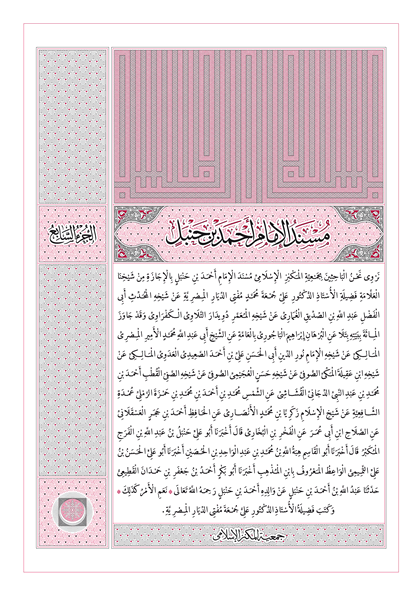 مُسْنَدُ الإِمَامِ أَحْمَدَ بْنِ حَنْبَلٍ
الجُزْءُ السَّابِعُ
نَرْوِى نَحْنُ الْبَاحِثِينَ بِجَمْعِيَّةِ الْمَكْنِزِ الإِسْلاَمِىِّ مُسْنَدَ الإِمَامِ أَحْمَدَ بْنِ حَنْبَلٍ بِالإِجَازَةِ مِنْ شَيْخِنَا
الْعَلاَّمَةِ فَضِيلَةِ الأُسْتَاذِ الدُّكْتُورِ عَلِىّ جُمْعَةَ مُحَمَّدٍ مُفْتِى الدِّيَارِ الْمِصْرِيَّةِ عَنْ شَيْخِهِ الْمُحَدِّثِ أَبِى
الْفَضْلِ عَبْدِ اللَّهِ بْنِ الصِّدِّيقِ الْغُمَارِىِّ عَنْ شَيْخِهِ الْمُعَمَّرِ دُوِيدَارَ التَّلاَوِىِّ الْكَفْرَاوِىِّ وَقَدْ جَاوَزَ
الْمِائَةَ بِيَقِينٍ عَنِ الْبُرْهَانِ إِبْرَاهِيمَ الْبَاجُورِىِّ بِالْعَامَّةِ عَنِ الشَّيْخِ أَبِى عَبْدِ اللَّهِ مُحَمَّدٍ الأَمِيرِ الْمِصْرِىِّ
الْمَالِكِىِّ عَنْ شَيْخِهِ الإِمَامِ نُورِ الدِّينِ أَبِى الْحَسَنِ عَلِىِّ بْنِ أَحْمَدَ الصَّعِيدِىِّ الْعَدَوِىِّ الْمَالِكِىِّ عَنْ
شَيْخِهِ ابْنِ عَقِيلَةَ الْمَكِّىِّ الصُّوفِىِّ عَنْ شَيْخِهِ حَسَنٍ الْعُجَيْمِىِّ الصُّوفِىِّ عَنْ شَيْخِهِ الصَّفِىِّ الْقُطْبِ أَحْمَدَ بْنِ
مُحَمَّدِ بْنِ عَبْدِ النَّبِىِّ الدَّجَانِىِّ الْقُشَاشِىِّ عَنِ الشَّمْسِ مُحَمَّدِ بْنِ أَحْمَدَ بْنِ مُحَمَّدِ بْنِ حَمْزَةَ الرَّمْلِىِّ عُمْدَةِ
الشَّافِعِيَّةِ عَنْ شَيْخِ الإِسْلاَمِ زَكَرِيَّا بْنِ مُحَمَّدٍ الأَنْصَارِىِّ عَنِ الْحَافِظِ أَحْمَدَ بْنِ حَجَرٍ الْعَسْقَلاَنِىِّ
عَنِ الصَّلاَحِ ابْنِ أَبِى عُمَرَ عَنِ الْفَخْرِ بْنِ الْبُخَارِىِّ قَالَ أَخْبَرَنَا أَبُو عَلِىٍّ حَنْبَلُ بْنُ عَبْدِ اللَّهِ بْنِ الْفَرَجِ
الْمُكَبِّرُ قَالَ أَخْبَرَنَا أَبُو الْقَاسِمِ هِبَةُ اللَّهِ بْنُ مُحَمَّدِ بْنِ عَبْدِ الْوَاحِدِ بْنِ الْحُصَيْنِ أَخْبَرَنَا أَبُو عَلِىٍّ الْحَسَنُ بْنُ
عَلِىٍّ التَّمِيمِىُّ الْوَاعِظُ الْمَعْرُوفُ بِابْنِ الْمُذْهِبِ أَخْبَرَنَا أَبُو بَكْرٍ أَحْمَدُ بْنُ جَعْفَرِ بْنِ حَمْدَانَ الْقَطِيعِىُّ
حَدَّثَنَا عَبْدُ اللَّهِ بْنُ أَحْمَدَ بْنِ حَنْبَلٍ عَنْ وَالِدِهِ أَحْمَدَ بْنِ حَنْبَلٍ رَحِمَهُ اللَّهُ تَعَالَى * نَعَمِ الأَمْرُ كَذَلِكَ *
وَكَتَبَ فَضِيلَةُ الأُسْتَاذِ الدُّكْتُورِ عَلِىّ جُمْعَةَ مُفْتِى الدِّيَارِ الْمِصْرِيَّةِ.
جمعية المكنز الإسلامي